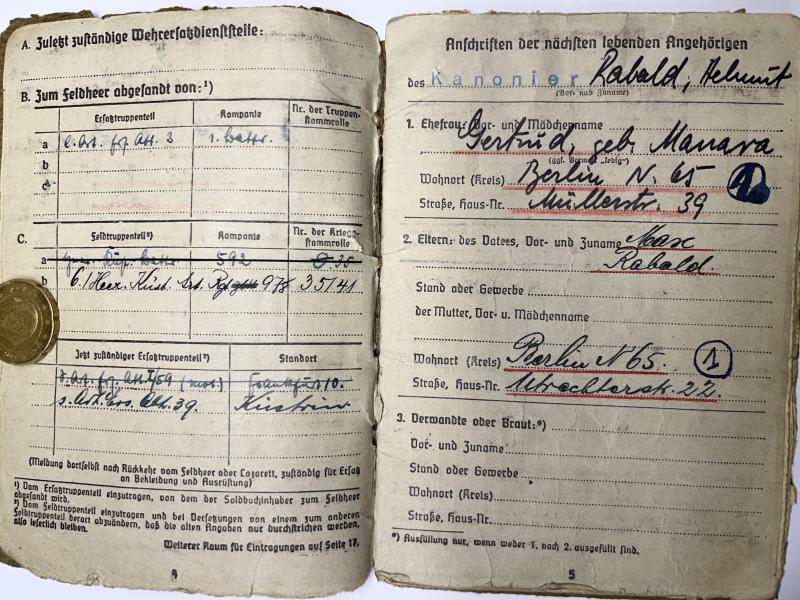 A. Zuletzt zuständige Wehrersatzdienststelle:
B. Zum Feldheer abgesandt von:¹)
Ersatztruppenteil
Kompanie
Nr. der Truppen-
stammrolle
a
3
1. Battr.
b
c
C.
Feldtruppenteil²)
Kompanie
Nr. der Kriegs-
stammrolle
a
592
35
b
6./ Heer. Küst. Art. 978
35/41
Jetzt zuständiger Ersatztruppenteil²)
Standort
Frankfurt/O.
s. Art. Ers. Abt. 39.
Küstrin
(Meldung dortselbst nach Rückkehr vom Feldheer oder Lazarett, zuständig für Ersatz
an Bekleidung und Ausrüstung)
¹) Vom Ersatztruppenteil einzutragen, von dem der Soldbuchinhaber zum Feldheer
abgesandt wird.
²) Vom Feldtruppenteil einzutragen und bei Versetzungen von einem zum anderen
Feldtruppenteil derart abzuändern, daß die alten Angaben nur durchstrichen werden,
also leserlich bleiben.
Weiterer Raum für Eintragungen auf Seite 17.
4
Anschriften der nächsten lebenden Angehörigen
des Kanonier Rabald, Helmut
(Vor- und Zuname)
1. Ehefrau: Vor- und Mädchenname
Gertrud, geb. Manara
(ggf. Vermerk „ledig“)
Wohnort (Kreis) Berlin N. 65
Straße, Haus-Nr. Müllerstr. 39
2. Eltern: des Vaters, Vor- und Zuname Max
Rabald.
Stand oder Gewerbe
der Mutter, Vor- u. Mädchenname
Wohnort (Kreis) Berlin N 65. 1
Straße, Haus-Nr. Utrechterstr. 22.
3. Verwandte oder Braut:*)
Vor- und Zuname
Stand oder Gewerbe
Wohnort (Kreis)
Straße, Haus-Nr.
*) Ausfüllung nur, wenn weder 1. noch 2. ausgefüllt sind.
5